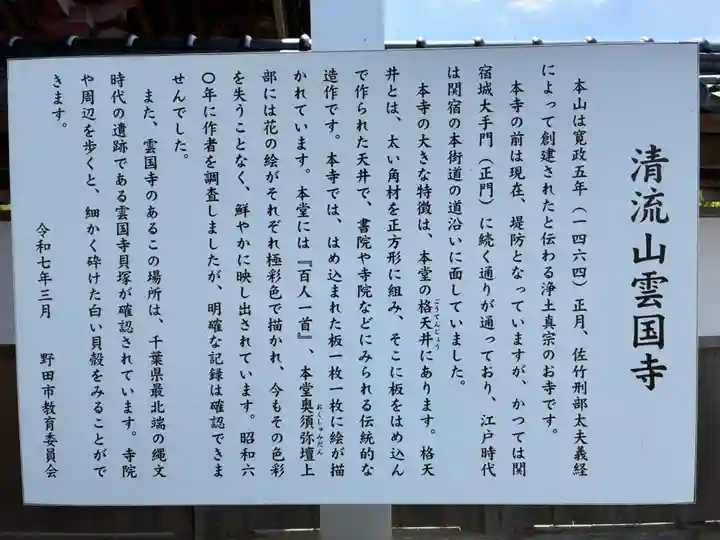 清流山雲国寺
本山は寛政五年（一四六四）正月、佐竹刑部太夫義経
によって創建されたと伝わる浄土真宗のお寺です。
本寺の前は現在、堤防となっていますが、かつては関
宿城大手門（正門）に続く通りが通っており、江戸時代
は関宿の本街道の道沿いに面していました。
本寺の大きな特徴は、本堂の格天井にあります。格天
ごうてんじょう
井とは、太い角材を正方形に組み、そこに板をはめ込ん
で作られた天井で、書院や寺院などにみられる伝統的な
造作です。本寺では、はめ込まれた板一枚一枚に絵が描
かれています。本堂には『百人一首』、本堂奥須弥壇上
おくしゅみだん
部には花の絵がそれぞれ極彩色で描かれ、今もその色彩
を失うことなく、鮮やかに映し出されています。昭和六
〇年に作者を調査しましたが、明確な記録は確認できま
せんでした。
また、雲国寺のあるこの場所は、千葉県最北端の縄文
時代の遺跡である雲国寺貝塚が確認されています。寺院
や周辺を歩くと、細かく砕けた白い貝殻をみることがで
きます。
令和七年三月　野田市教育委員会